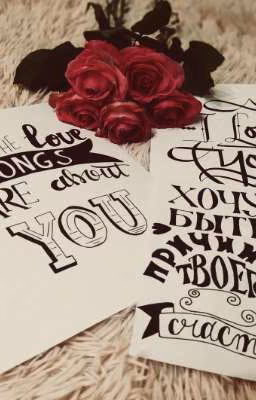 HE love
ONGS
RE about
YOU
I Lo
ХОЧУ
БЫТЬ
ПРИЧИН
ТВОЕГ
счаст